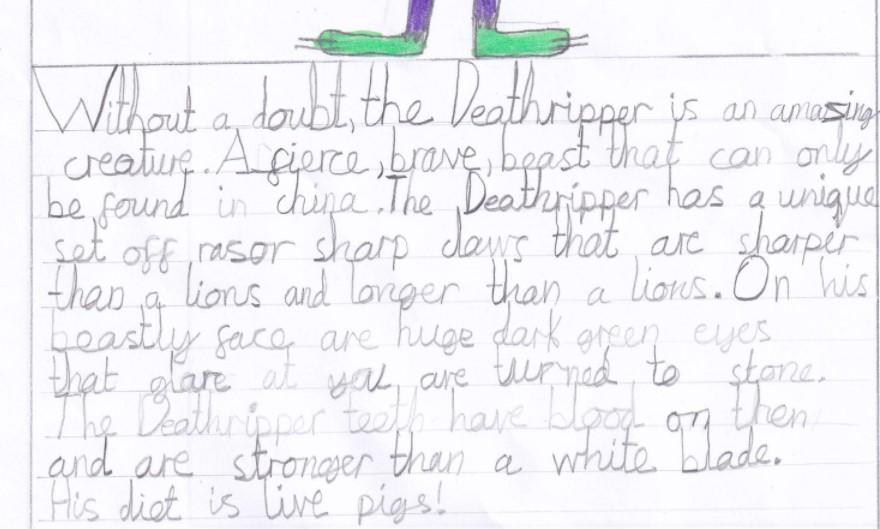 Without a doubt, the Deathripper is an amazing
creature. A fierce, brave, beast that can only
be found in china. The Deathripper has a unique
set off rasor sharp claws that are sharper
than a lions and longer than a lions. On his
beastly face are huge dark green eyes
that glare at you are turned to stone.
The Deathripper teeth have blood on then
and are stronger than a white blade.
His diet is live pigs!